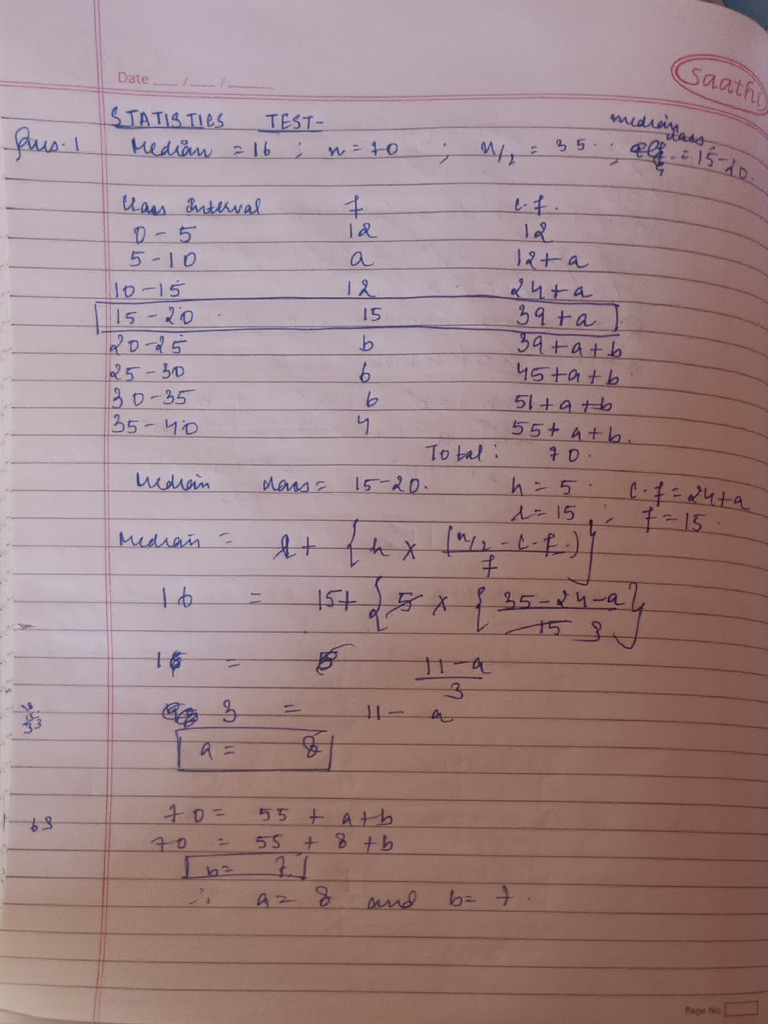 Date __/__/____
Saathi
STATISTICS TEST-
Ques.1 Median = 16 ; n = 70 ; n/2 = 35 ; median class = 15-20.
Class Interval f c.f.
0-5 12 12
5-10 a 12+a
10-15 12 24+a
15-20 15 39+a
20-25 b 39+a+b
25-30 6 45+a+b
30-35 6 51+a+b
35-40 4 55+a+b.
Total: 70.
Median class = 15-20. h = 5. c.f = 24+a
l = 15 ; f = 15.
Median = l + {h × (n/2 - c.f.)/f}
16 = 15+ {5 × {35-24-a/15 3}}
1 = 11-a/3
3 = 11- a
a = 8
70 = 55 + a+b
70 = 55 + 8 +b
b= 7
∴ a= 8 and b= 7.
Page No.